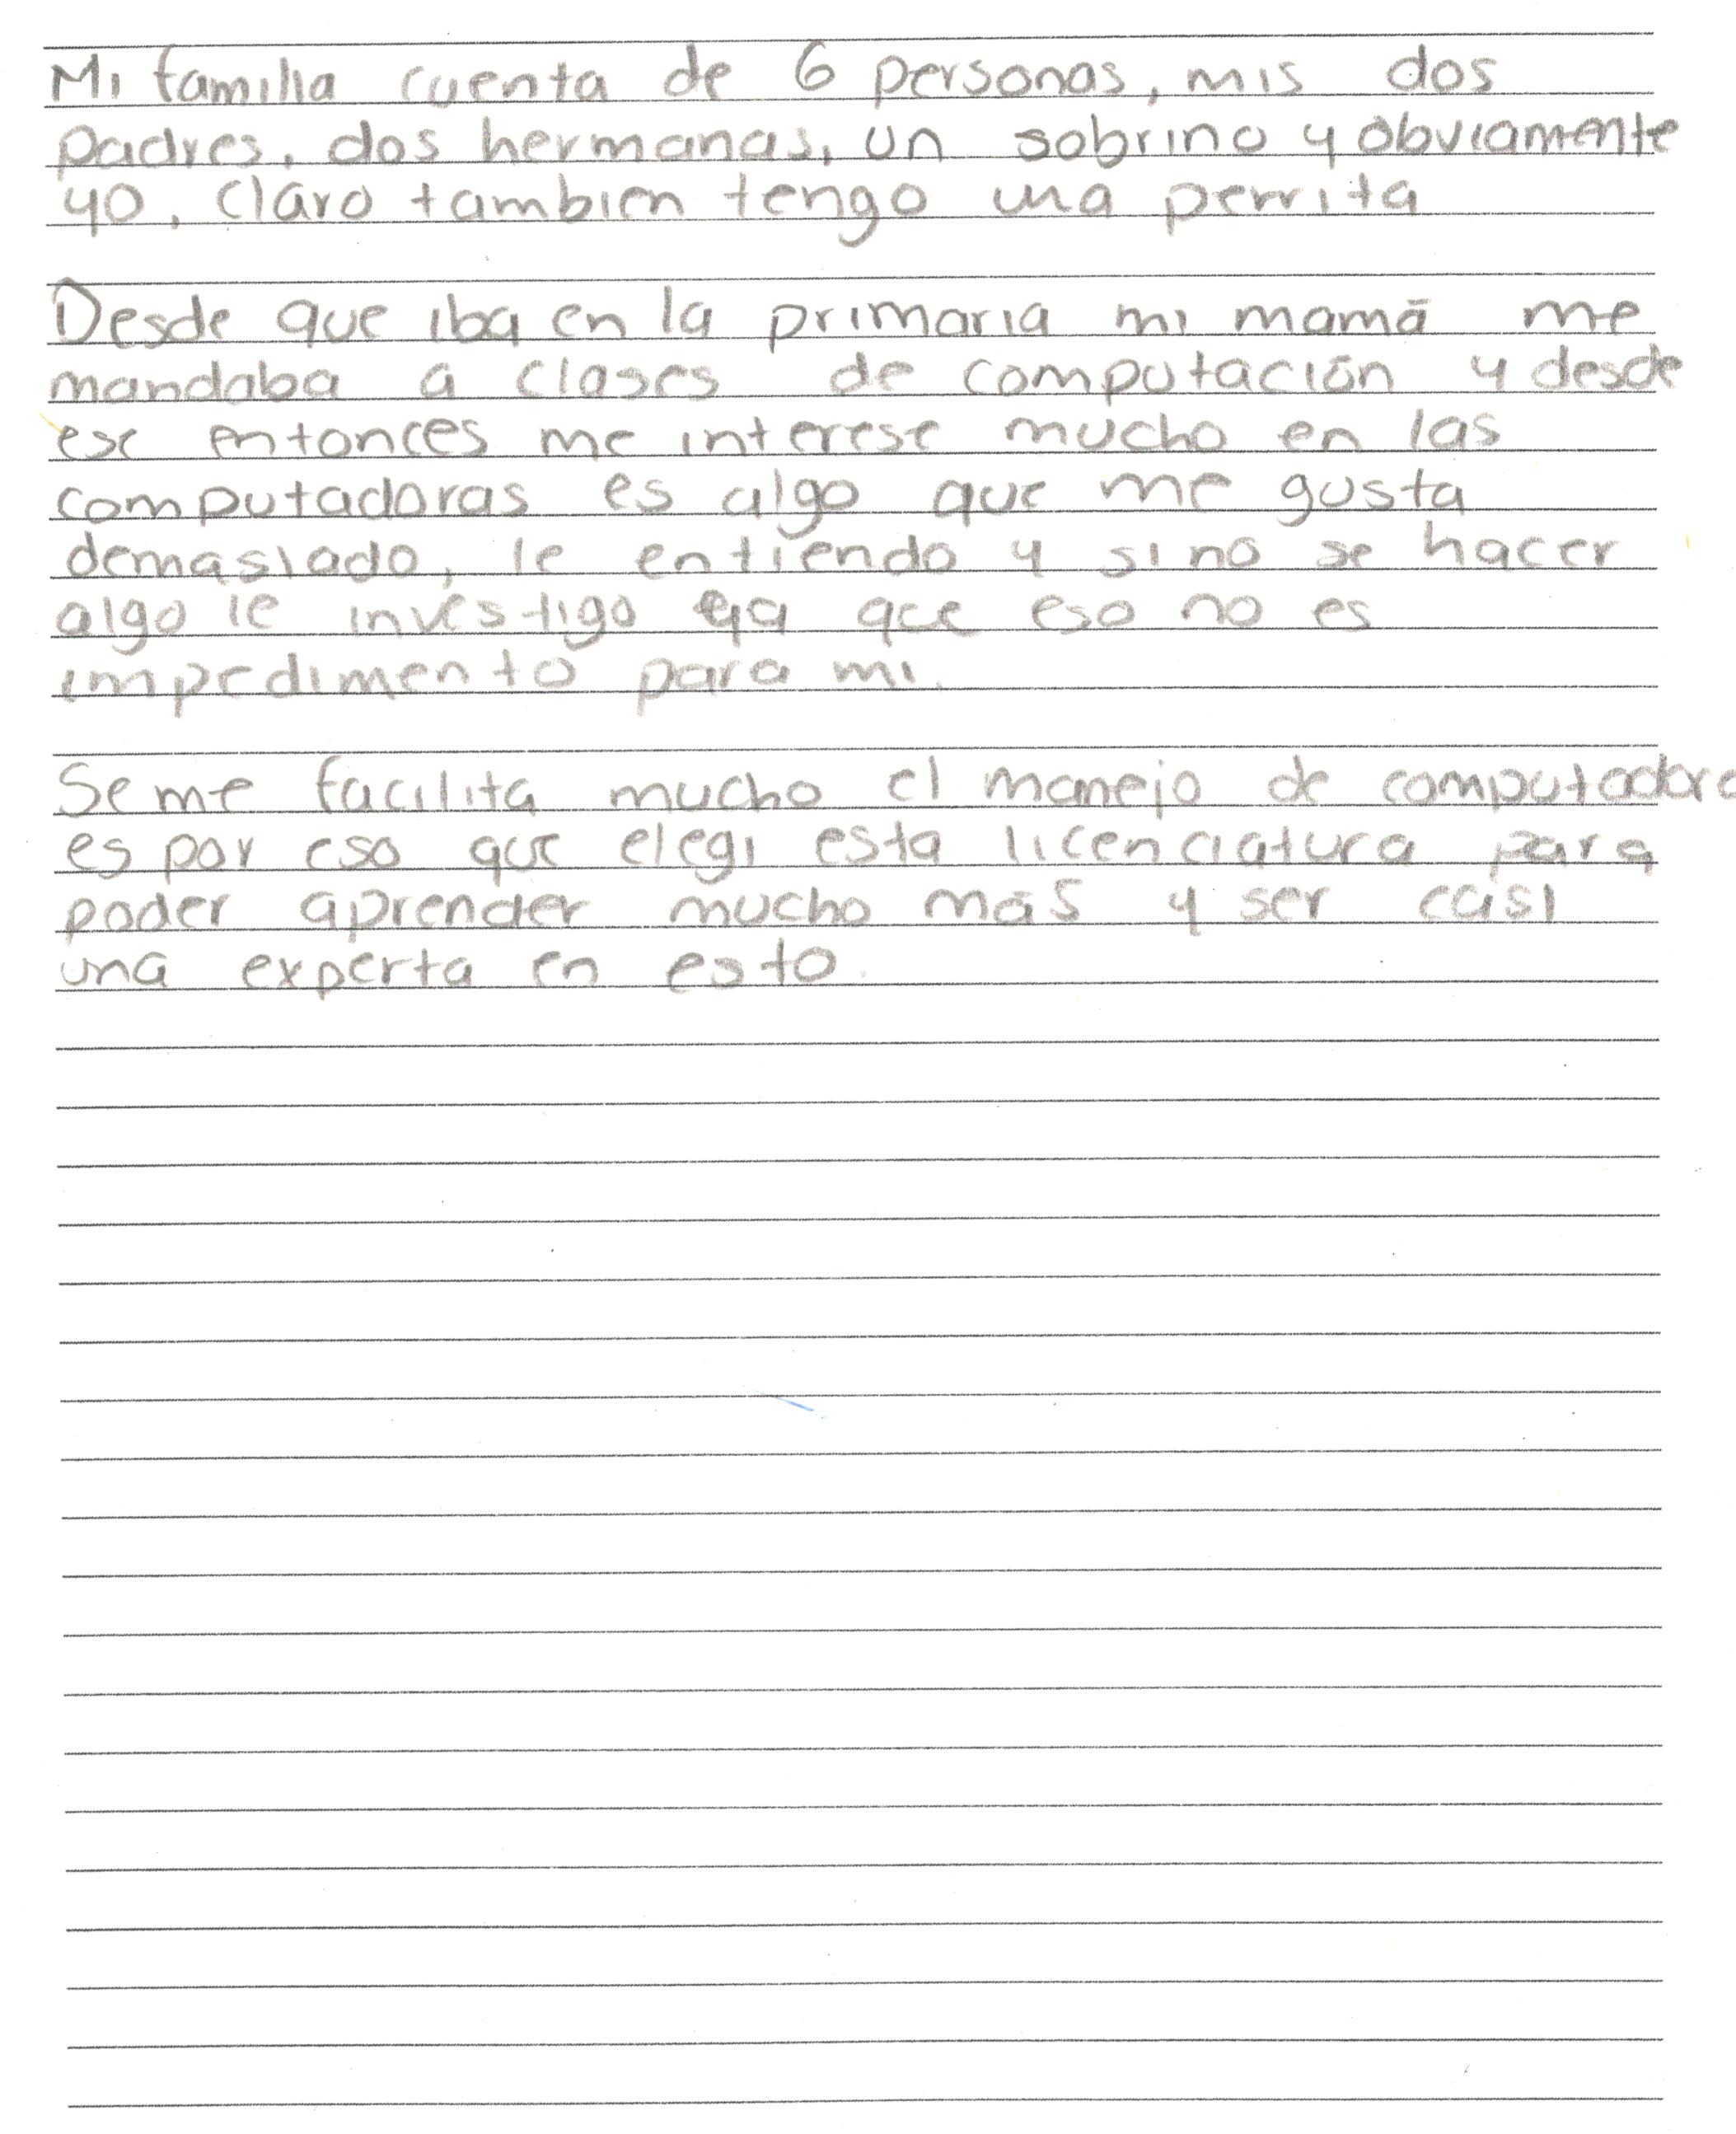 Mi familia cuenta de 6 personas, mis dos
padres, dos hermanas, un sobrino y obviamente
yo, claro tambien tengo una perrita
Desde que iba en la primaria mi mamá me
mandaba a clases de computación y desde
ese entonces me interese mucho en las
computadoras es algo que me gusta
demasiado, le entiendo y si no se hacer
algo le investigo ya que eso no es
impedimento para mi.
Se me facilita mucho el manejo de computadora
es por eso que elegi esta licenciatura para
poder aprender mucho más y ser casi
una experta en esto.